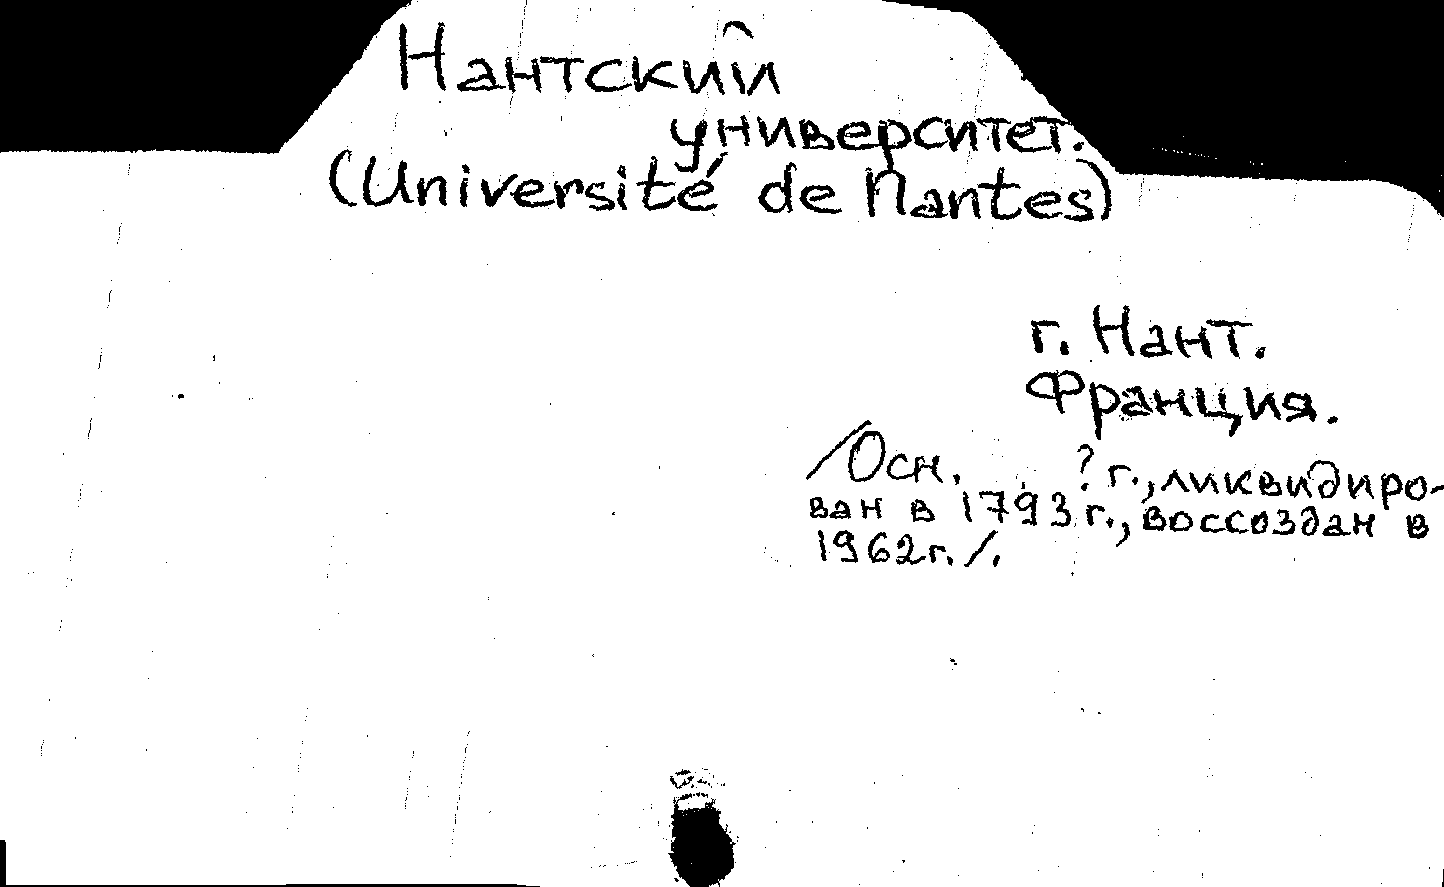 Нантский
университет.
(Université de Nantes)
г. Нант.
Франция.
/Осн. ? г., ликвидиро-
ван в 1793 г., воссоздан в
1962г./.